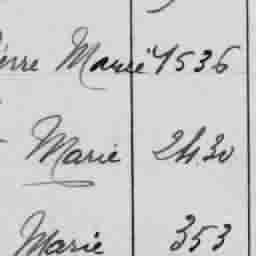 Marie 4536
Marie 2430
Marie 353